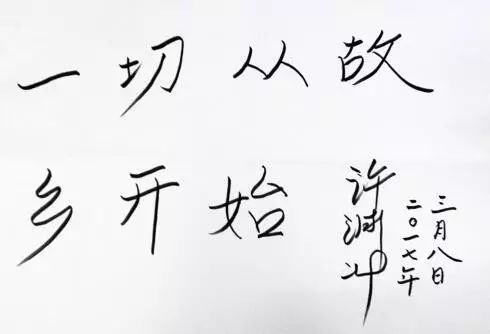 一切从故
乡开始
许渊冲
二〇一七年
三月八日